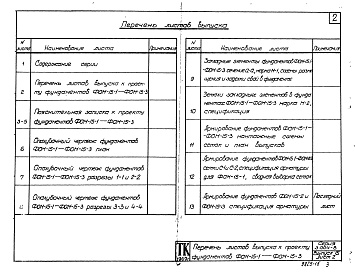 2
Перечень листов выпуска
N листа
Наименование листа
Примечание
1
Содержание серии
2
Перечень листов выпуска к проекту фундаментов ФОН-15-1 — ФОН-15-3
3-5
Пояснительная записка к проекту фундаментов ФОН-15-1 — ФОН-15-3
6
Опалубочный чертеж фундаментов ФОН-15-1 — ФОН-15-3 план
7
Опалубочный чертеж фундаментов ФОН-15-1 — ФОН-15-3 разрезы 1-1 и 2-2
Опалубочный чертеж фундаментов ФОН-15-1 — ФОН-15-3 разрезы 3-3 и 4-4
N листа
Наименование листа
Примечание
9
Закладные элементы фундаментов ФОН-15-1
10
Детали закладных элементов в фундаментах ФОН-15-1 — ФОН-15-3 марка М-2, спецификация
11
Армирование фундаментов ФОН-15-1 — ФОН-15-3 монтажные схемы сеток и план выпусков
12
Армирование фундаментов ФОН-15-1
для ФОН-15-1, сборная выборка сеток
13
Армирование фундаментов ФОН-15-2 и ФОН-15-3 спецификация арматуры
Последний лист
ТК
Перечень листов выпуска к проекту фундаментов ФОН-15-1 — ФОН-15-3
Серия
3